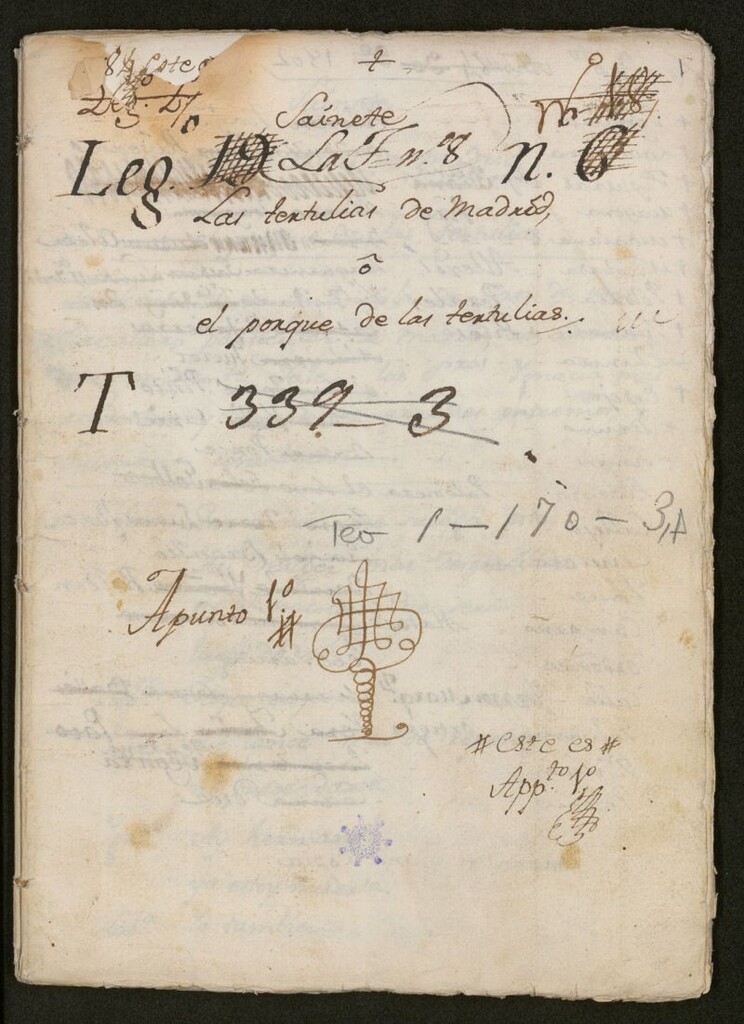 +
Sainete
Leg. 19 La F n.º 8 n. 6
8
Las tertulias de Madrid,
ô
el porque de las tertulias.
T 339-3
Teo 1-170-3, A
Apunto 1º
# este es #
App.to 1º